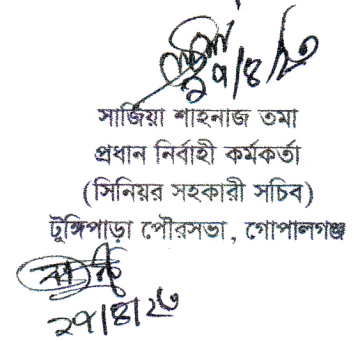 ২৭/৪/২৩
সার্জিয়া শাহনাজ তমা
প্রধান নির্বাহী কর্মকর্তা
(সিনিয়র সহকারী সচিব)
টুঙ্গিপাড়া পৌরসভা, গোপালগঞ্জ
২৭/৪/২৩